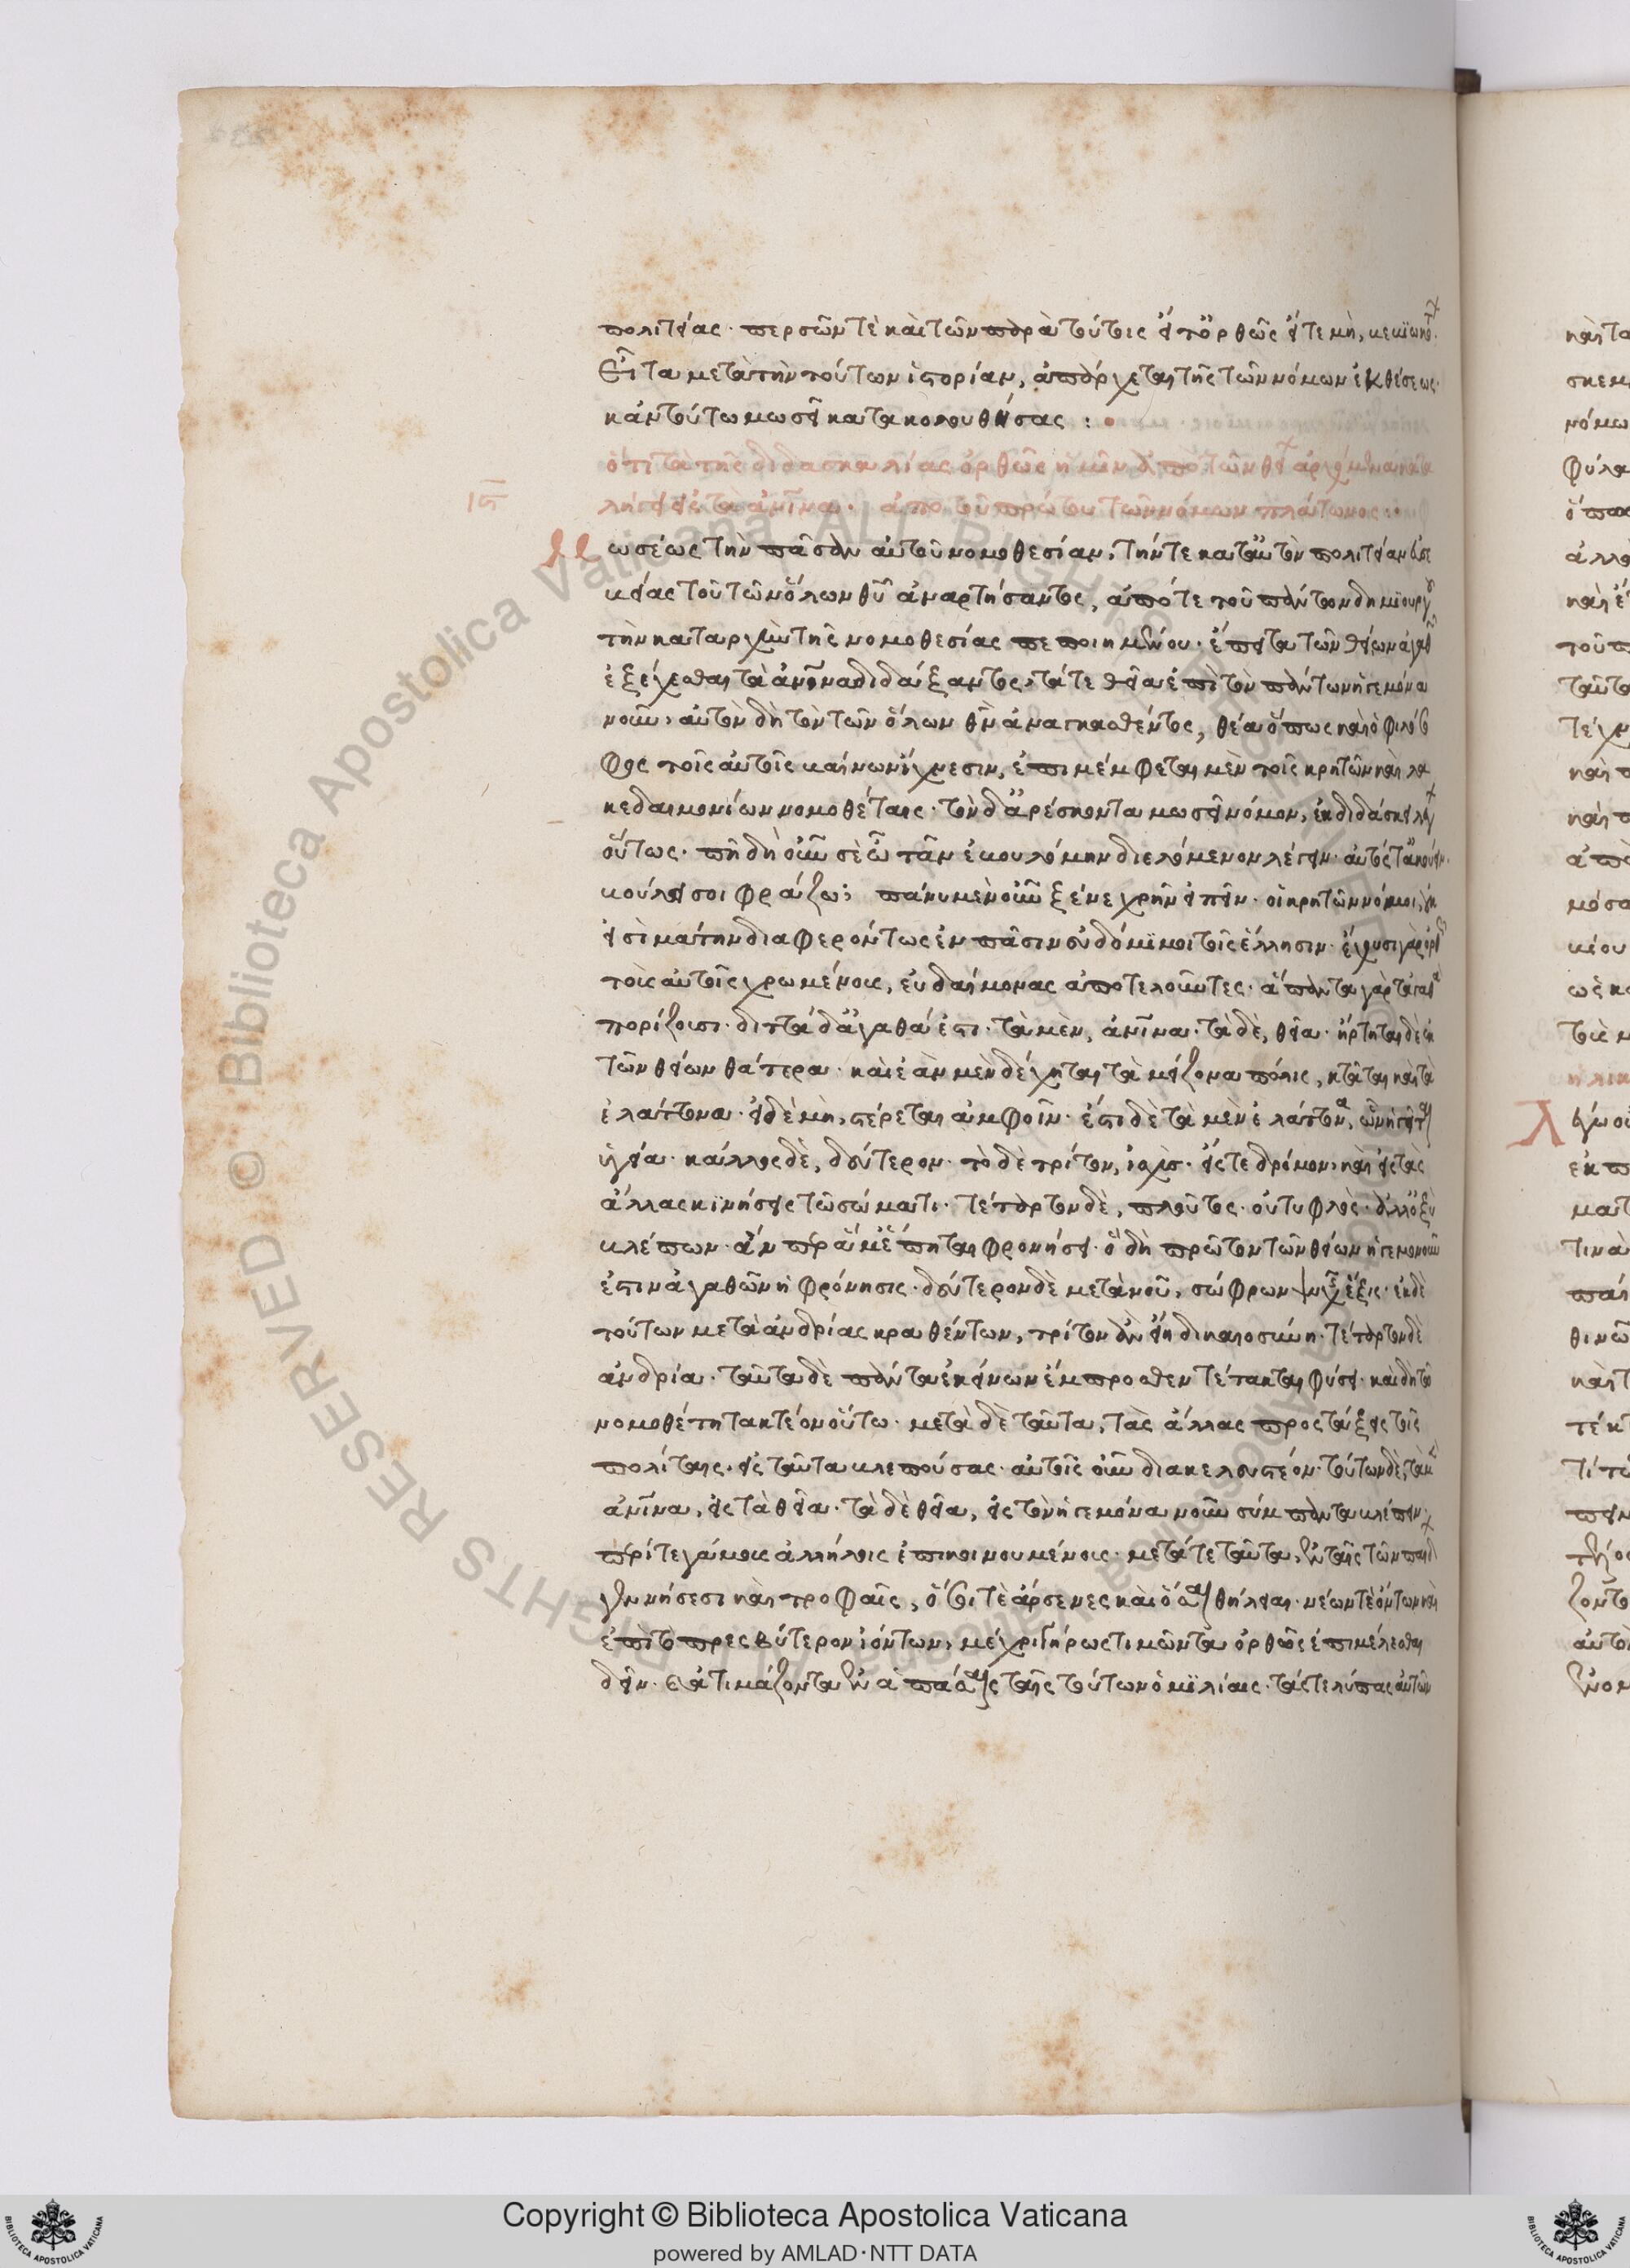 πολιτείας· περσῶν τὲ καὶ τῶν παρὰ τούτοις εἴτ' ὀρθῶς εἴτε μὴ, βεβιωκότ
Εἶτα μετὰ τὴν τούτων ἱστορίαν, ἀπάρχεται τῆς τῶν νόμων ἐκθέσεως·
κἀν τούτω μωσεῖ κατακολουθήσας :
ὅτι τὰ τῆς διδασκαλίας ὀρθῶς ἡμῖν ἀπὸ τῶν θείων ἀρχόμενα
λήγει εἰς τὰ ἀνῖνα· ἀπὸ τοῦ πρώτου τῶν νόμων πλάτωνος :
ιϛ
Μωσέως τὴν πᾶσαν αὐτοῦ νομοθεσίαν, τήν τε κατ' αὐτὸν πολιτείαν εὐσε
βείας τοῦ τῶν ὅλων θῦ ἀναρτήσαντος, ἀπό τε τοῦ πάντων δημιουργοῦ
τὴν καταρχὴν τῆς νομοθεσίας πεποιημένου· ἔπειτα τῶν θείων ἀγαθῶν
ἐξέχεσθαι τὰ ἀνῖνα διδάξαντος, τά τε θεῖα ἐπὶ τὸν πάντων ἡγεμόνα
νοῦν, αὐτὸν δὴ τὸν τῶν ὅλων θῦν ἀναγκασθέντος, θέα ὅπως καὶ ὁ φιλόσο
φος τοῖς αὐτοῖς καίνων ἴχνεσιν, ἐπιμέμφεται μὲν τοῖς κρητῶν καὶ λα
κεδαιμονίων νομοθέταις· τὸν δ' ἀρέσκοντα μωσεῖ νόμον, ἐκδιδάσκει λέγων
οὕτως· πῆ δὴ οὖν σὲ ὦ τᾶν ἐβουλόμην διελόμενον λέγειν· αὐτός τ' ἀκούειν·
βούλει σοι φράζω; πάνυ μὲν οὖν ξένε χρῆν εἰπεῖν· οἱ κρητῶν νόμοι, οὐκ
εἰσὶ μάτην διαφερόντως ἐν πᾶσιν εὐδόκιμοι τοῖς ἕλλησιν· ἔχουσι γὰρ ὀρθῶς
τοὺς αὐτοῖς χρωμένους, εὐδαίμονας ἀποτελοῦντες· ἅπαντα γὰρ τἀγαθὰ
πορίζουσι· διττὰ δ' ἀγαθά ἐστι· τὰ μὲν, ἀνῖνα· τὰ δὲ, θεῖα· ἤρτηται δὲ ἐκ
τῶν θείων θάτερα· καὶ ἐὰν μὲν δέχηται τὰ μείζονα πόλις, κτᾶται καὶ τὰ
ἐλάττονα· εἰ δὲ μὴ, στέρεται ἀμφοῖν· ἔστι δὲ τὰ μὲν ἐλάττονα, ὧν ἡγεῖται
ὑγεία· κάλλος δὲ, δεύτερον· τὸ δὲ τρίτον, ἰσχὺς· εἴς τε δρόμον, καὶ εἰς τὰς
ἄλλας κινήσεις τῶ σώματι· τέταρτον δὲ, πλοῦτος· οὐ τυφλὸς· ἀλλ' ὀξὺ
βλέπων· ἄν περ ἅμ' ἕπηται φρονήσει· ὃ δὴ πρῶτον τῶν θείων ἡγεμονοῦν
ἐστιν ἀγαθῶν ἡ φρόνησις· δεύτερον δὲ μετὰ νοῦ, σώφρων ψυχῆς ἕξις· ἐκ δὲ
τούτων μετὰ ἀνδρίας κραθέντων, τρίτον ἂν εἴη δικαιοσύνη· τέταρτον δὲ
ἀνδρία· ταῦτα δὲ πάντα ἐκείνων ἔμπροσθεν τέτακται φύσει· καὶ δὴ τῶ
νομοθέτη τακτέον οὕτω· μετὰ δὲ ταῦτα, τὰς ἄλλας προστάξεις τοῖς
πολίταις, εἰς ταῦτα βλεπούσας· αὐτοῖς οὖν διακελευστέον· τούτων δὲ, τὰ μὲν
ἀνῖνα, εἰς τὰ θεῖα· τὰ δὲ θεῖα, εἰς τὸν ἡγεμόνα νοῦν σύμπαντα βλέπειν·
περί τε γάμους ἀλλήλοις ἐπικοινουμένους· μετά τε ταῦτα, ἐν ταῖς τῶν παίδων
γεννήσεσι καὶ τροφαῖς, ὅσοι τὲ ἄρσενες καὶ ὅσαι θήλειαι· νέων τὲ ὄντων καὶ
ἐπὶ τὸ πρεσβύτερον ἰόντων, μέχρι γήρως τιμῶντα ὀρθῶς ἐπιμέλεσθαι
δεῖν· ἀτιμάζοντα ἐν ἁπάσαις ταῖς τούτων ὁμιλίαις· τάς τε λύπας αὐτῶν